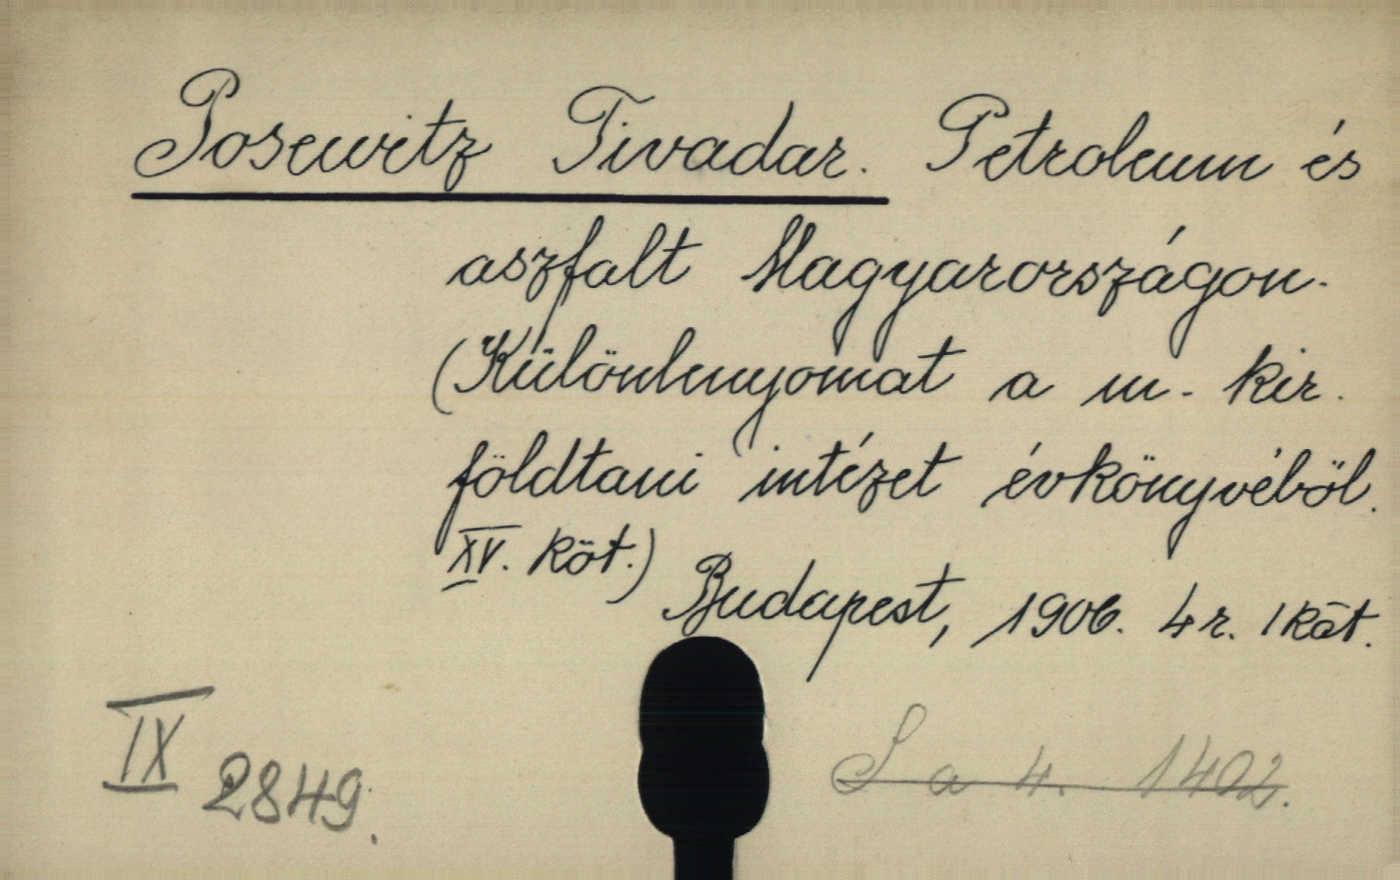 Posewitz Tivadar. Petroleum és
aszfalt Magyarországon.
(Különlenyomat a m. kir.
földtani intézet évkönyvéből.
XV. köt.) Budapest, 1906. 4r. 1 köt.
IX 2849.
S a 4. 1402.